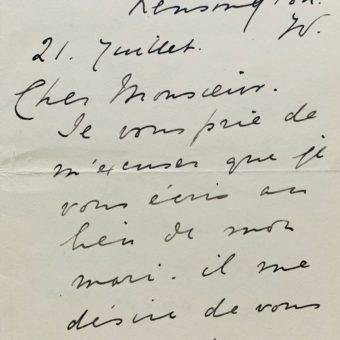 Kensington.
W.
21. Juillet.
Cher Monsieur.
Je vous prie de
m'excuser que je
vous écris au
lieu de mon
mari. il me
désire de vous